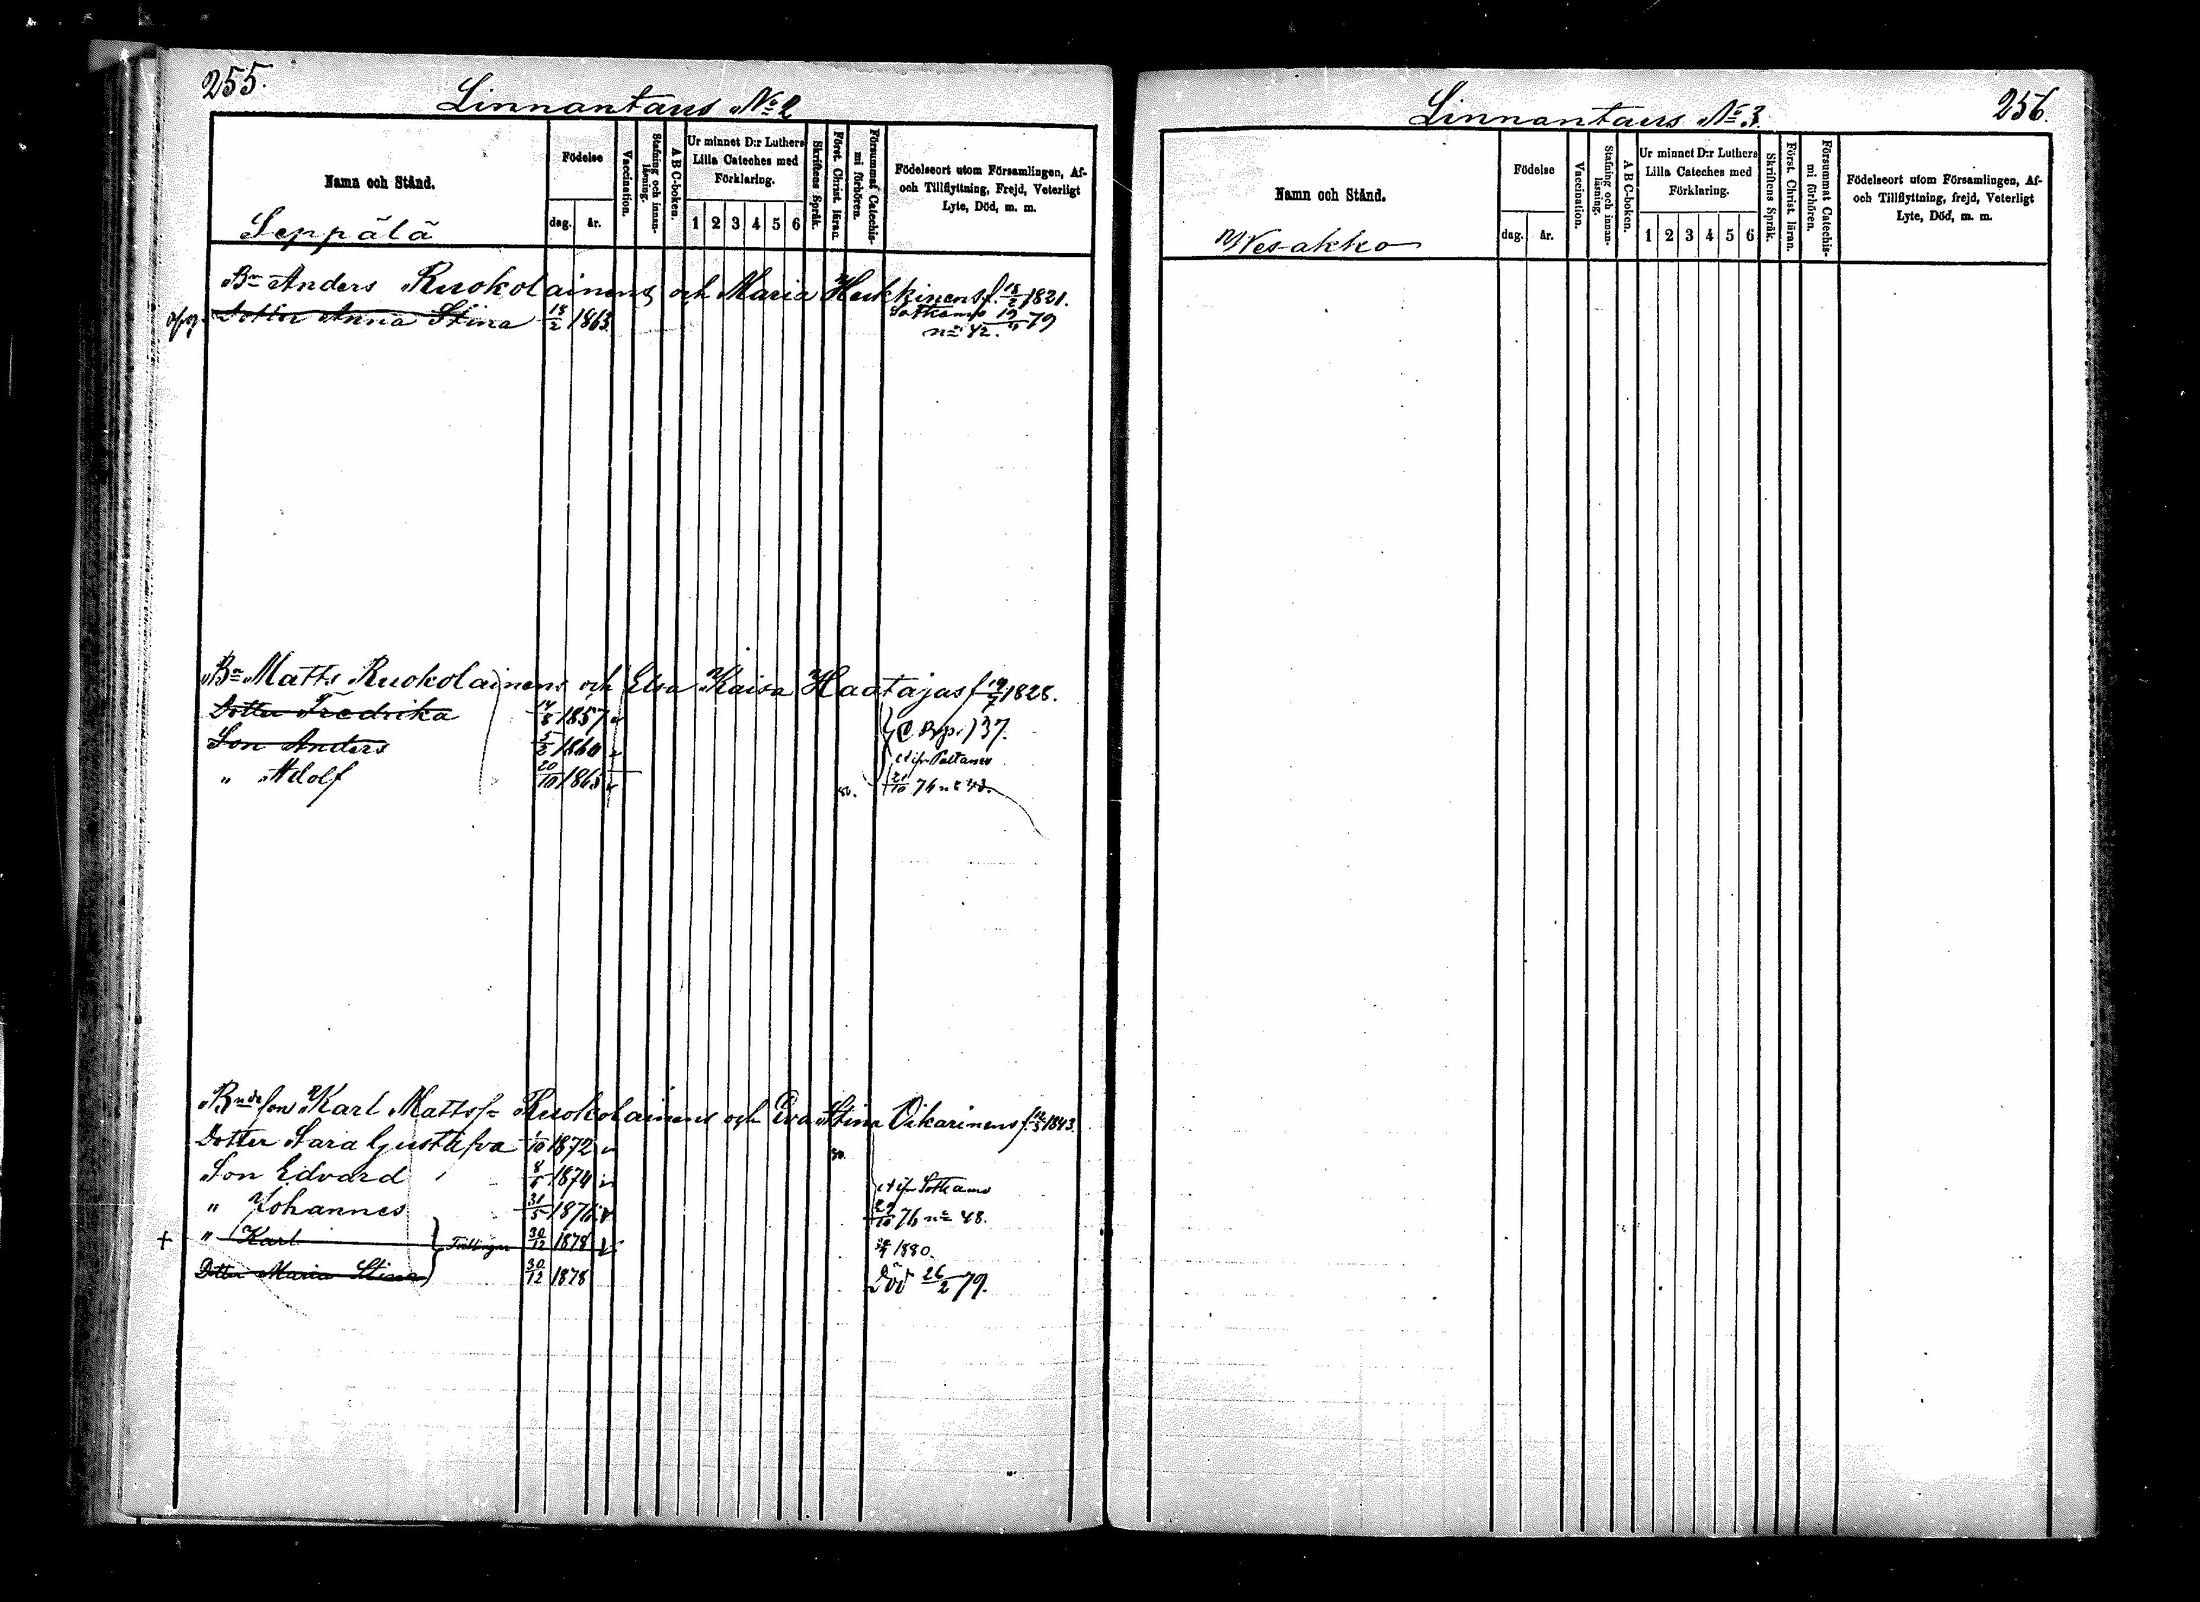 255.
Linnantaus No 2
Namn och Stånd.
Födelse
dag. år.
Vaccination.
Stafning och innan-läsning.
A B C-boken.
Ur minnet D:r Luthers Lilla Cateches med Förklaring.
1 2 3 4 5 6
Skriftens Språk.
Först. Christ. läran.
Försummat Catechis-mi förhören.
Födelseort utom Församlingen, Af- och Tillflyttning, Frejd, Veterligt Lyte, Död, m. m.
Seppälä
Bn Anders Ruokolainens och Maria Heikkinens f. 18/2 1821.
Dotter Anna Stina 18/2 1863 Sotkamo 19/11 79
no 42.
Bn Matts Ruokolainens och Elsa Kaisa Haatajas f 19/7 1828.
Dotter Fredrika 14/8 1857 37.
Son Anders 5/2 1860 Paltamo
" Adolf 20/10 1863 21/10 76 no 43.
Bnde son Karl Mattss Ruokolainens och Eva Stina Oikarinens f. 1843.
Dotter Sara Gustafva 1/10 1872
Son Edvard 1874 Sotkamo
" Johannes 31/5 1876 29/10 76 no 48.
+ " Karl Tvillingar 30/12 1878 1880.
Dotter Maria Stina 30/12 1878 Död 26/2 79.
Linnantaus No 3.
256.
Namn och Stånd.
Födelse
dag. år.
Vaccination.
Stafning och innan-läsning.
A B C-boken.
Ur minnet D:r Luthers Lilla Cateches med Förklaring.
1 2 3 4 5 6
Skriftens Språk.
Först. Christ. läran.
Försummat Catechis-mi förhören.
Födelseort utom Församlingen, Af- och Tillflyttning, frejd, Veterligt Lyte, Död, m. m.
Wesakko